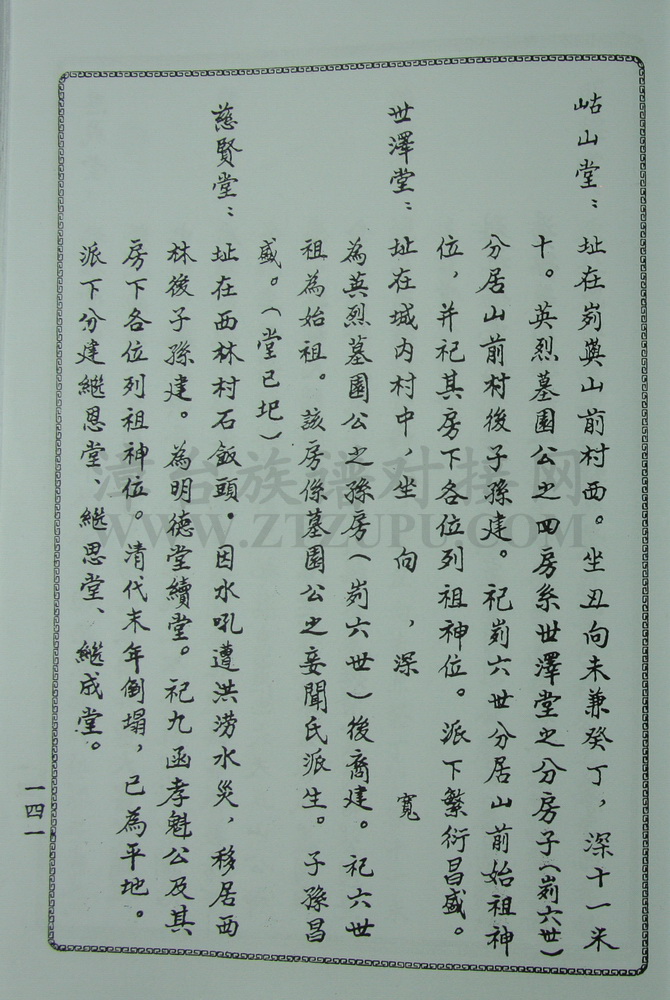 岵山堂：址在崱嶼山前村西。坐丑向未兼癸丁，深十一米
十。英烈墓園公之四房系世澤堂之分房子（崱六世）
分居山前村後子孫建。祀崱六世分居山前始祖神
位，并祀其房下各位列祖神位。派下繁衍昌盛。
世澤堂：址在城內村中，坐　向　，深　　　寬
為英烈墓園公之孫房（崱六世）後裔建。祀六世
祖為始祖。該房係墓園公之妾聞氏派生。子孫昌
盛。（堂已圯）
慈賢堂：址在西林村石飯頭．因水吼遭洪澇水災，移居西
林後子孫建。為明德堂續堂。祀九函孝魁公及其
房下各位列祖神位。清代末年倒塌，已為平地。
派下分建繼恩堂、繼思堂、繼成堂。
一四一
漳台族譜对接网
WWW.ZTZUPU.COM